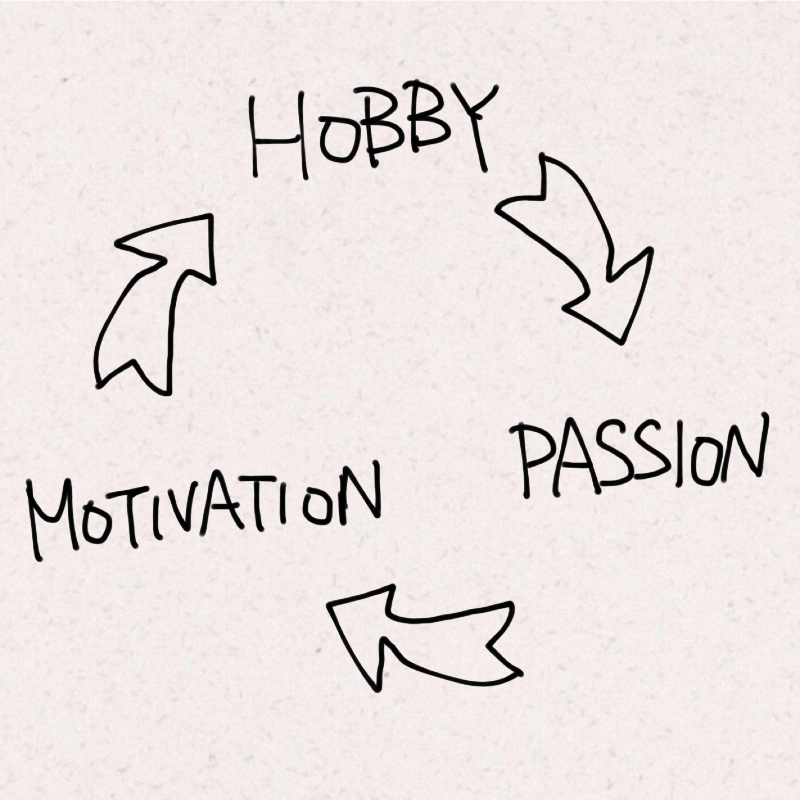 HOBBY
PASSION
MOTIVATION